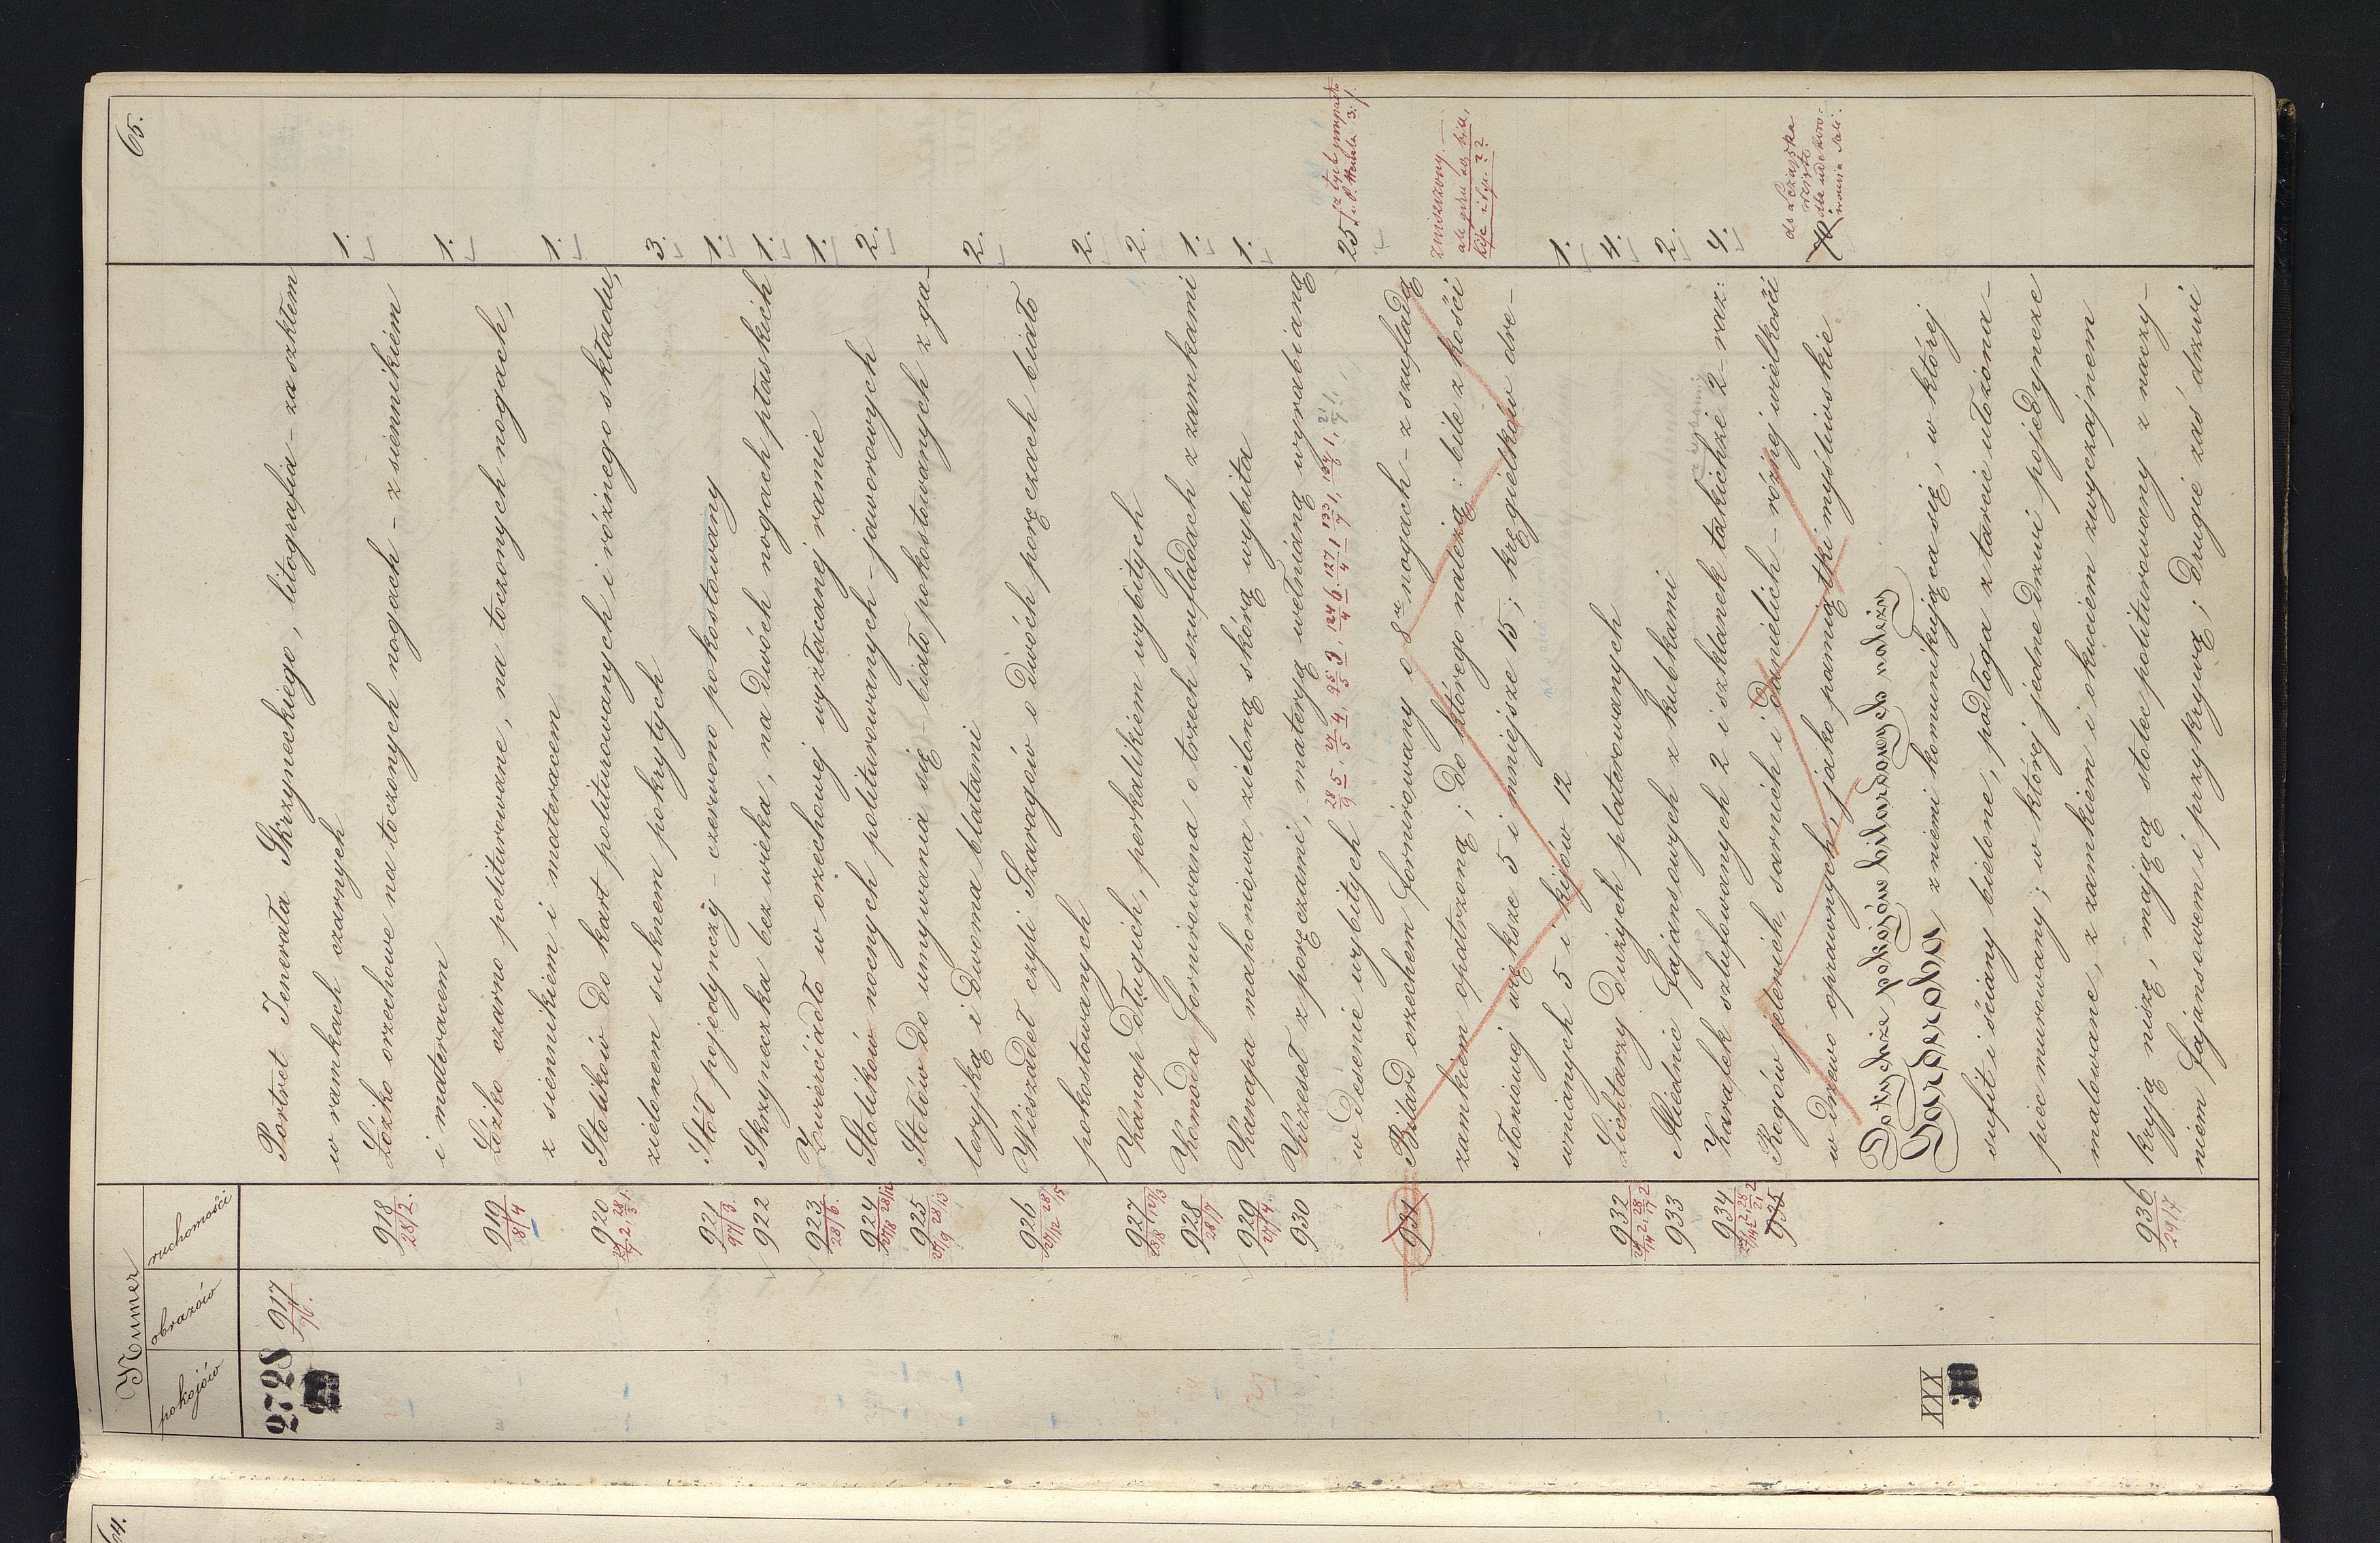 65.
Numer
pokojów obrazów ruchomości
2728 917 Portret Jenerała Skrzyneckiego, litografia – za szkłem
w ramkach czarnych 1.
918 Łóżko orzechowe na toczonych nogach – z siennikiem
28/2. i materacem 1.
919 Łóżko czarno politurowane, na toczonych nogach,
z siennikiem i materacem 1.
920 Stolików do kart politurowanych i różnego składu,
zielonem suknem pokrytych 3.
921 Stół pojedynczy – czerwono pokostowany 1.
922 Skrzyneczka bez wieka, na dwóch nogach ptaskich 1.
923 Zwierciadło w orzechowej wyzłacanej ramie 1.
28/6.
924 Stolików nocnych politurowanych – jaworowych 2.
925 Stołów do umywania się – biało pokostowanych z ga-
leryjką i dwoma blatami 2.
926 Wieszadeł czyli Szaragów o dwóch poręczach biało
pokostowanych 2.
927 Kanap długich, perkalikiem wybitych 2.
928 Komoda fornirowana o trzech szufladach z zamkami 1.
28/7
929 Kanapa mahoniowa zieloną skórą wybita 1.
27/4.
930 Krzeseł z poręczami, materyą wełnianą wyrabianą
w desenie wybitych 25.
931 Bilard orzechem fornirowany o 8 nogach – z szufladą
zamkiem opatrzoną; do którego należą: bile z kości zniszczony
słoniowej większe 5 i mniejsze 15; kręgielków dre-
wnianych 5 i kijów 12 1.
932 Lichtarzy dużych platerowanych 4.
933 Miednic fajansowych z kubkami 2.
934 Karafek szlufowanych 2 i szklanek takichże 2 – raz: 4.
935 Rogów jelenich, sarnich i danielich – różnej wielkości
w drzewo oprawnych, jako pamiątki myśliwskie
Do tychże pokojów bilardowych należy
XXX Garderoba z niemi komunikująca się, w której
30 sufit i ściany bielone, podłoga z tarcic ułożona –
piec murowany; w której jedne drzwi pojedyncze
malowane, z zamkiem i okuciem zwyczajnem
936 kryją niszę, mającą stolec politurowany z naczy-
29/7 niem fajansowem i przykrywą; drugie zaś drzwi
64.